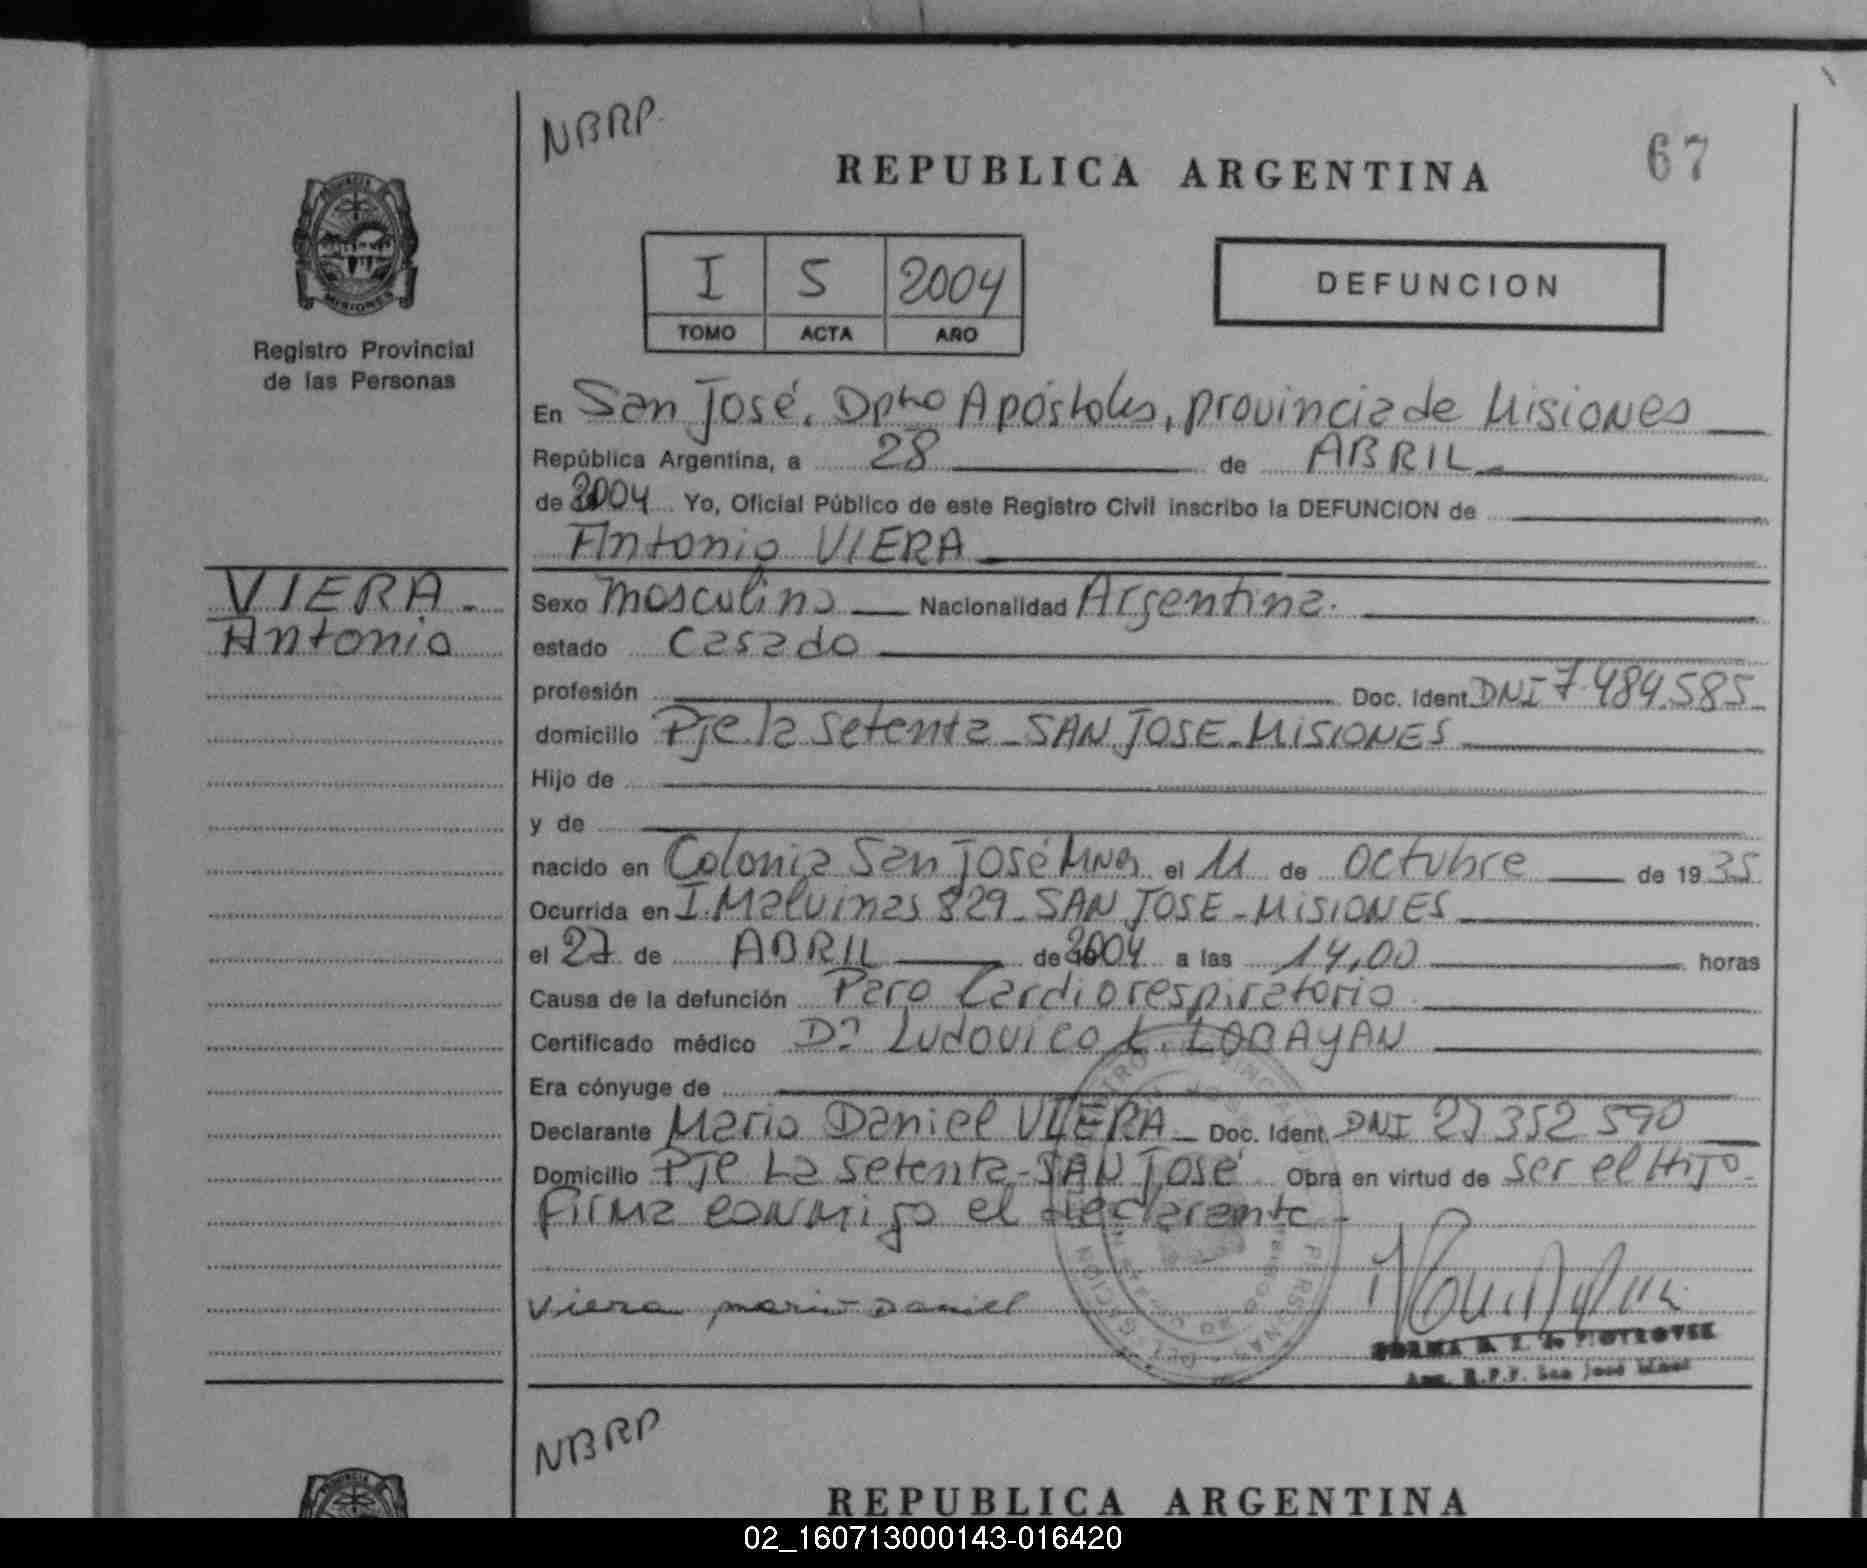 NBRP.
REPUBLICA ARGENTINA
67
PROVINCIA DE
MISIONES
Registro Provincial
de las Personas
I 5 2004
TOMO ACTA AÑO
DEFUNCION
En San José, Dpto Apóstoles, provincia de Misiones
República Argentina, a 28 de ABRIL
de 2004 Yo, Oficial Público de este Registro Civil inscribo la DEFUNCION de
Antonio VIERA
VIERA
Antonio
Sexo masculino Nacionalidad Argentina.
estado casado
profesión Doc. Ident. DNI 7.484.585
domicilio Pje. la setenta - SAN JOSE - MISIONES
Hijo de
y de
nacido en Colonia San José Mnes el 11 de octubre de 1935
Ocurrida en I. Malvinas 829 - SAN JOSE - MISIONES
el 27 de ABRIL de 2004 a las 14,00 horas
Causa de la defunción Paro Cardiorespiratorio
Certificado médico Dr. Ludovico L. LOBAYAN
Era cónyuge de
Declarante Mario Daniel VIERA Doc. Ident. DNI 27 352 590
Domicilio Pje La setenta - SAN José Obra en virtud de ser el Hijo -
firma conmigo el declarante -
Viera mario Daniel
San José
NBRP
REPUBLICA ARGENTINA
02_160713000143-016420